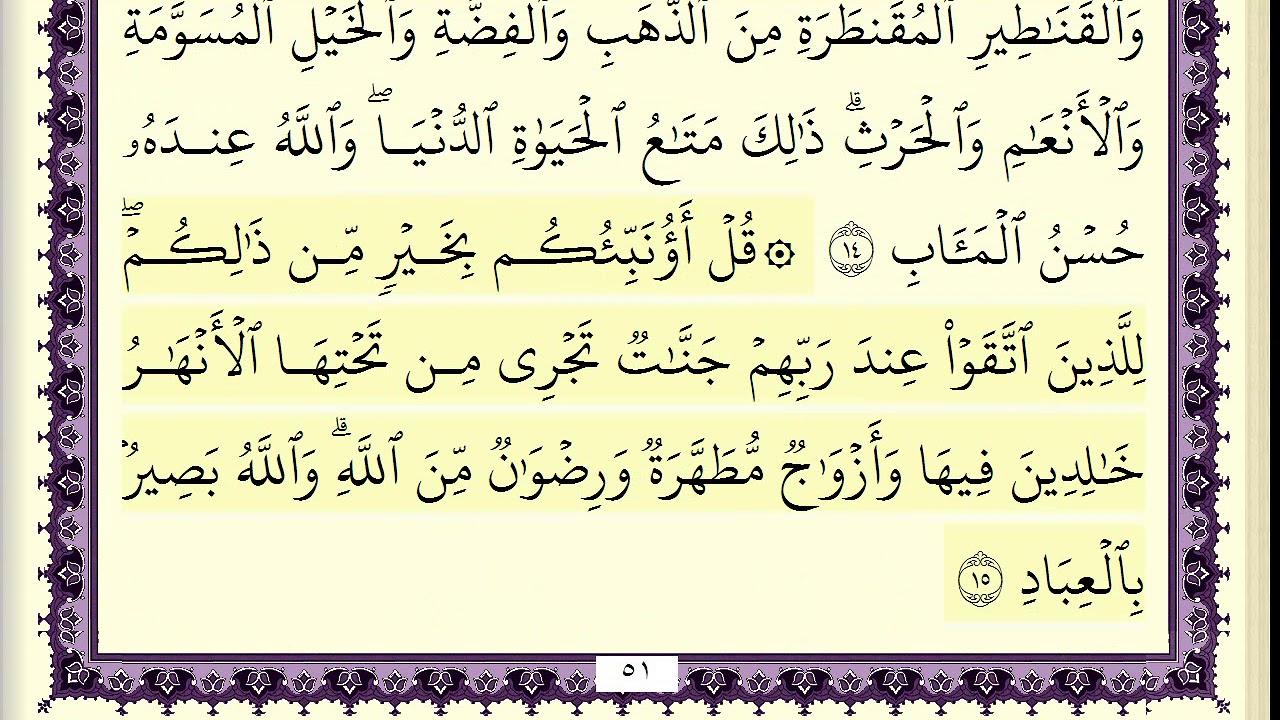 وَٱلۡقَنَٰطِيرِ ٱلۡمُقَنطَرَةِ مِنَ ٱلذَّهَبِ وَٱلۡفِضَّةِ وَٱلۡخَيۡلِ ٱلۡمُسَوَّمَةِ
وَٱلۡأَنۡعَٰمِ وَٱلۡحَرۡثِۗ ذَٰلِكَ مَتَٰعُ ٱلۡحَيَوٰةِ ٱلدُّنۡيَاۖ وَٱللَّهُ عِندَهُۥ
حُسۡنُ ٱلۡمَـَٔابِ ١٤ ۞ قُلۡ أَؤُنَبِّئُكُم بِخَيۡرٖ مِّن ذَٰلِكُمۡۖ
لِلَّذِينَ ٱتَّقَوۡاْ عِندَ رَبِّهِمۡ جَنَّٰتٞ تَجۡرِي مِن تَحۡتِهَا ٱلۡأَنۡهَٰرُ
خَٰلِدِينَ فِيهَا وَأَزۡوَٰجٞ مُّطَهَّرَةٞ وَرِضۡوَٰنٞ مِّنَ ٱللَّهِۗ وَٱللَّهُ بَصِيرُۢ
بِٱلۡعِبَادِ ١٥
٥١